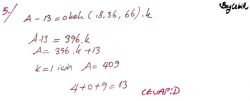 5./
A-13=okek(18,36,66).k
A-13=396.k
A=396.k+13
k=1 için A=409
4+0+9=13
CEVAP:D